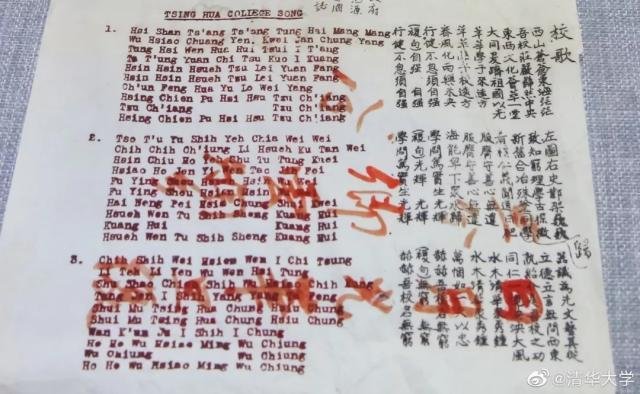 TSING HUA COLLEGE SONG
1. Hsi Shan Ts'ang Ts'ang Tung Hai Mang Mang
Wu Hsiao Chuang Yen, Kwei Jan Chung Yang
Tung Hsi Wen Hua Hui Tsui I T'ang
Ta T'ung Yuan Chi Tsu Kuo I Kuang
Hsin Hsin Hsueh Tzu Lei Yuan Fang
Hsin Hsin Hsueh Tzu Lei Yuan Fang
Ch'un Feng Hua Yu Lo Wei Yang
Hsing Chien Pu Hsi Hsu Tzu Ch'iang
Tzu Ch'iang Tzu Ch'iang
Hsing Chien Pu Hsi Hsu Tzu Ch'iang
2. Tso T'u Yu Shih Yeh Chia Wei Wei
Chih Chih Ch'iung Li Hsueh Ku Tan Wei
Hsin Chiu Ho Shu Tu Tung Kuei
Hsiao Ho Jen Yi Wen Tao Fei
Fu Ying Hsin Wu Wei
Fu Ying Shou Hsin Wei
Hai Neng Pei Hsia Chung Shui Kuei
Hsueh Wen Tu Shih Sheng Kuang Hui
Kuang Hui Kuang Hui
Hsueh Wen Tu Shih Sheng Kuang Hui
3. Chih Shih Wei Hsien Wen I Chi Tsung
Li Teh Li Yen Wu Wen Hsi Tung
Shu Shao Shih Wu Hsiao Chih Kung
Tung Jen I Shih Yang Feng
Shui Mu Tsing Hua Chung Hsiu Chung
Shui Mu Tsing Hua Chung Hsiu Chung
Wan K'un Ju I Shih I Chung
Ho Ho Wu Hsiao Ming Wu Chiung
Wu Chiung Wu Chiung
Ho Ho Wu Hsiao Ming Wu Chiung
校歌
西山蒼蒼東海茫茫
吾校莊嚴巍然中央
東西文化薈萃一堂
大同爰躋祖國以光
莘莘學子來遠方
莘莘學子來遠方
春風化雨樂未央
行健不息須自强
複句自强自强
行健不息須自强
左圖右史鄴架巍巍
致知窮理學古探微
新舊合冶殊途同歸
肴核仁義聞道日肥
服膺守善心無違
服膺守善心無違
海能卑下衆水歸
學問篤實生光輝
複句光輝光輝
學問篤實生光輝
器識為先文藝其從
立德立言無問西東
孰紹介是吾校之功
同仁一視泱泱大風
水木清華衆秀鐘
水木清華衆秀鐘
萬悃如一矢以忠
赫赫吾校名無窮
複句無窮無窮
赫赫吾校名無窮
歸
@清华大学